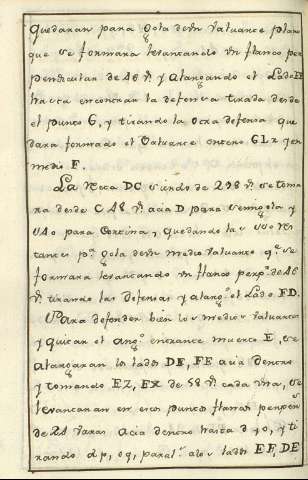 Quedaran para gola de un Valuarte plano
que se formara levantando un flanco per
pendicular de 48 v.s y alargando el Lado FE
hasta encontrar la defensa tirada desde
el punto G, y tirando la otra defensa que
dara formado el Valuarte entero GLR y en
medio F.
La recta DC siendo de 298 v.s se toma
ra desde C 48 v.s acia D para semigola y
para Cortina, y quedando las
tantes p.a gola de un medio Valuarte q.e se
formara levantando un flanco perp.r de 48
v.s tirando las defensas y alarg.do el Lado FD.
Para defender bien los medios Valuartes
y quitar el ang.o entrante muerto E, se
alargaran los lados DE, FE acia dentro
y tomando EZ, EX de 58 v.s cada una, se
levantaran en esos puntos flancos perpen.s
de 24 varas acia dentro hasta d y o, y ti
rando dp, oq, paral.s a los lados EF, DE